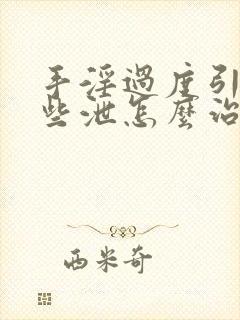 手淫过度引
些泄怎麼治
西米奇